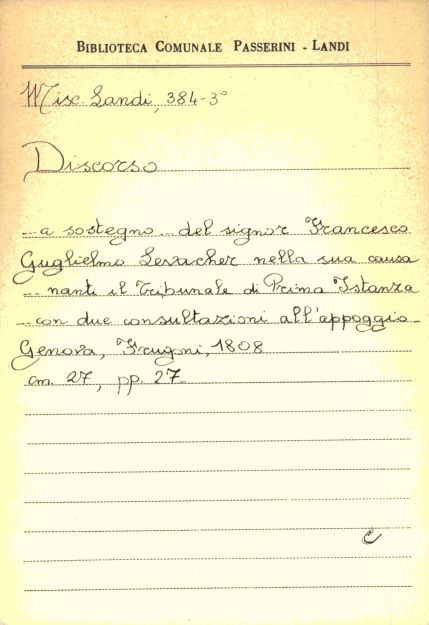 BIBLIOTECA COMUNALE PASSERINI - LANDI
Misc. Landi, 384-3°
Discorso
... a sostegno ... del signor Francesco
Guglielmo Levacher nella sua causa
... nanti il Tribunale di Prima Istanza
... con due consultazioni all'appoggio
Genova, Frugoni, 1808
cm. 27, pp. 27
C